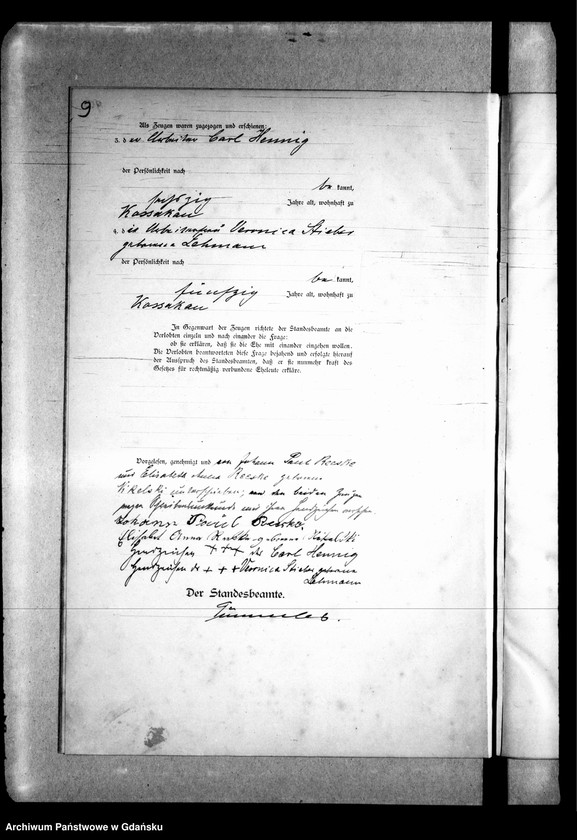 9
Als Zeugen waren zugezogen und erschienen:
3. der Arbeiter Carl Hennig
der Persönlichkeit nach
bekannt,
sechszig Jahre alt, wohnhaft zu
Kossakau
4. die Arbeiterfrau Veronica Stieber
geborene Lehmann
der Persönlichkeit nach
bekannt,
fünfzig Jahre alt, wohnhaft zu
Kossakau
In Gegenwart der Zeugen richtete der Standesbeamte an die
Verlobten einzeln und nach einander die Frage:
ob sie erklären, daß sie die Ehe mit einander eingehen wollen.
Die Verlobten beantworteten diese Frage bejahend und erfolgte hierauf
der Ausspruch des Standesbeamten, daß er sie nunmehr kraft des
Gesetzes für rechtmäßig verbundene Eheleute erkläre.
Vorgelesen, genehmigt und von Johann Paul
und Elisabeth Anna geborene
unterschrieben; von den beiden Zeugen
wegen Schreibensunkunde mit ihren Handzeichen
Johann Paul
Elisabet Anna geborene
Handzeichen +++ des Carl Hennig
Handzeichen der +++ Veronica Stieber geborene
Lehmann
Der Standesbeamte.